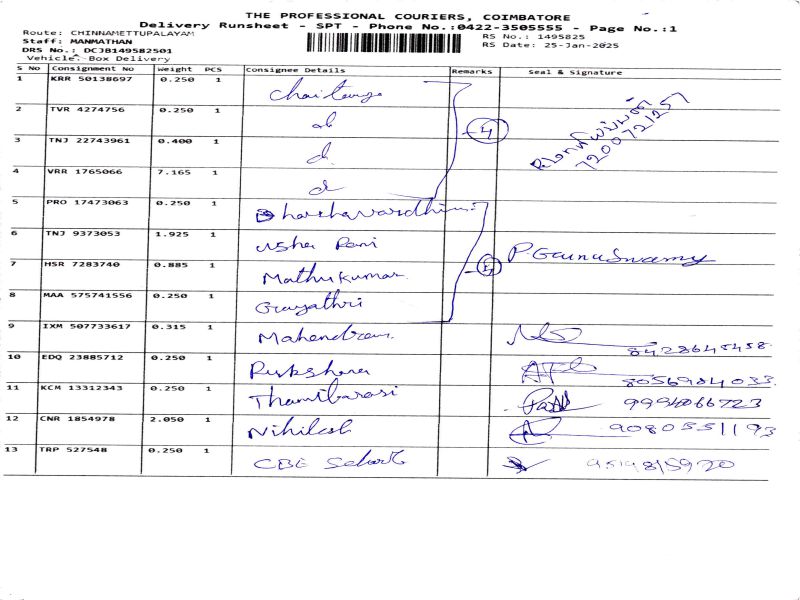 THE PROFESSIONAL COURIERS, COIMBATORE
Delivery Runsheet - SPT - Phone No.:0422-3505555 - Page No.:1
Route: CHINNAMETTUPALAYAM
RS No.: 1495825
Staff: MANMATHAN
RS Date: 25-Jan-2025
DRS No.: DCJB149582501
Vehicle: Box Delivery
S No Consignment No Weight PCS Consignee Details Remarks Seal & Signature
1 KRR 50138697 0.250 1 Chaitanya
2 TVR 4274756 0.250 1
3 TNJ 22743961 0.400 1
4 VRR 1765066 7.165 1
4
7200721257
5 PRO 17473063 0.250 1 Dharshavardhini
6 TNJ 9373053 1.925 1 Usha Rani
7 HSR 7283740 0.885 1 Mathukumar
8 MAA 575741556 0.250 1 Gayathri
P. Guruswamy
9 IXM 507733617 0.315 1 Mahendran 8428645458
10 EDQ 23885712 0.250 1 8056984033
11 KCM 13312343 0.250 1 Thamilarasi 9994066723
12 CNR 1854978 2.050 1 Nihilesh 9080551193
13 TRP 527548 0.250 1 CBE